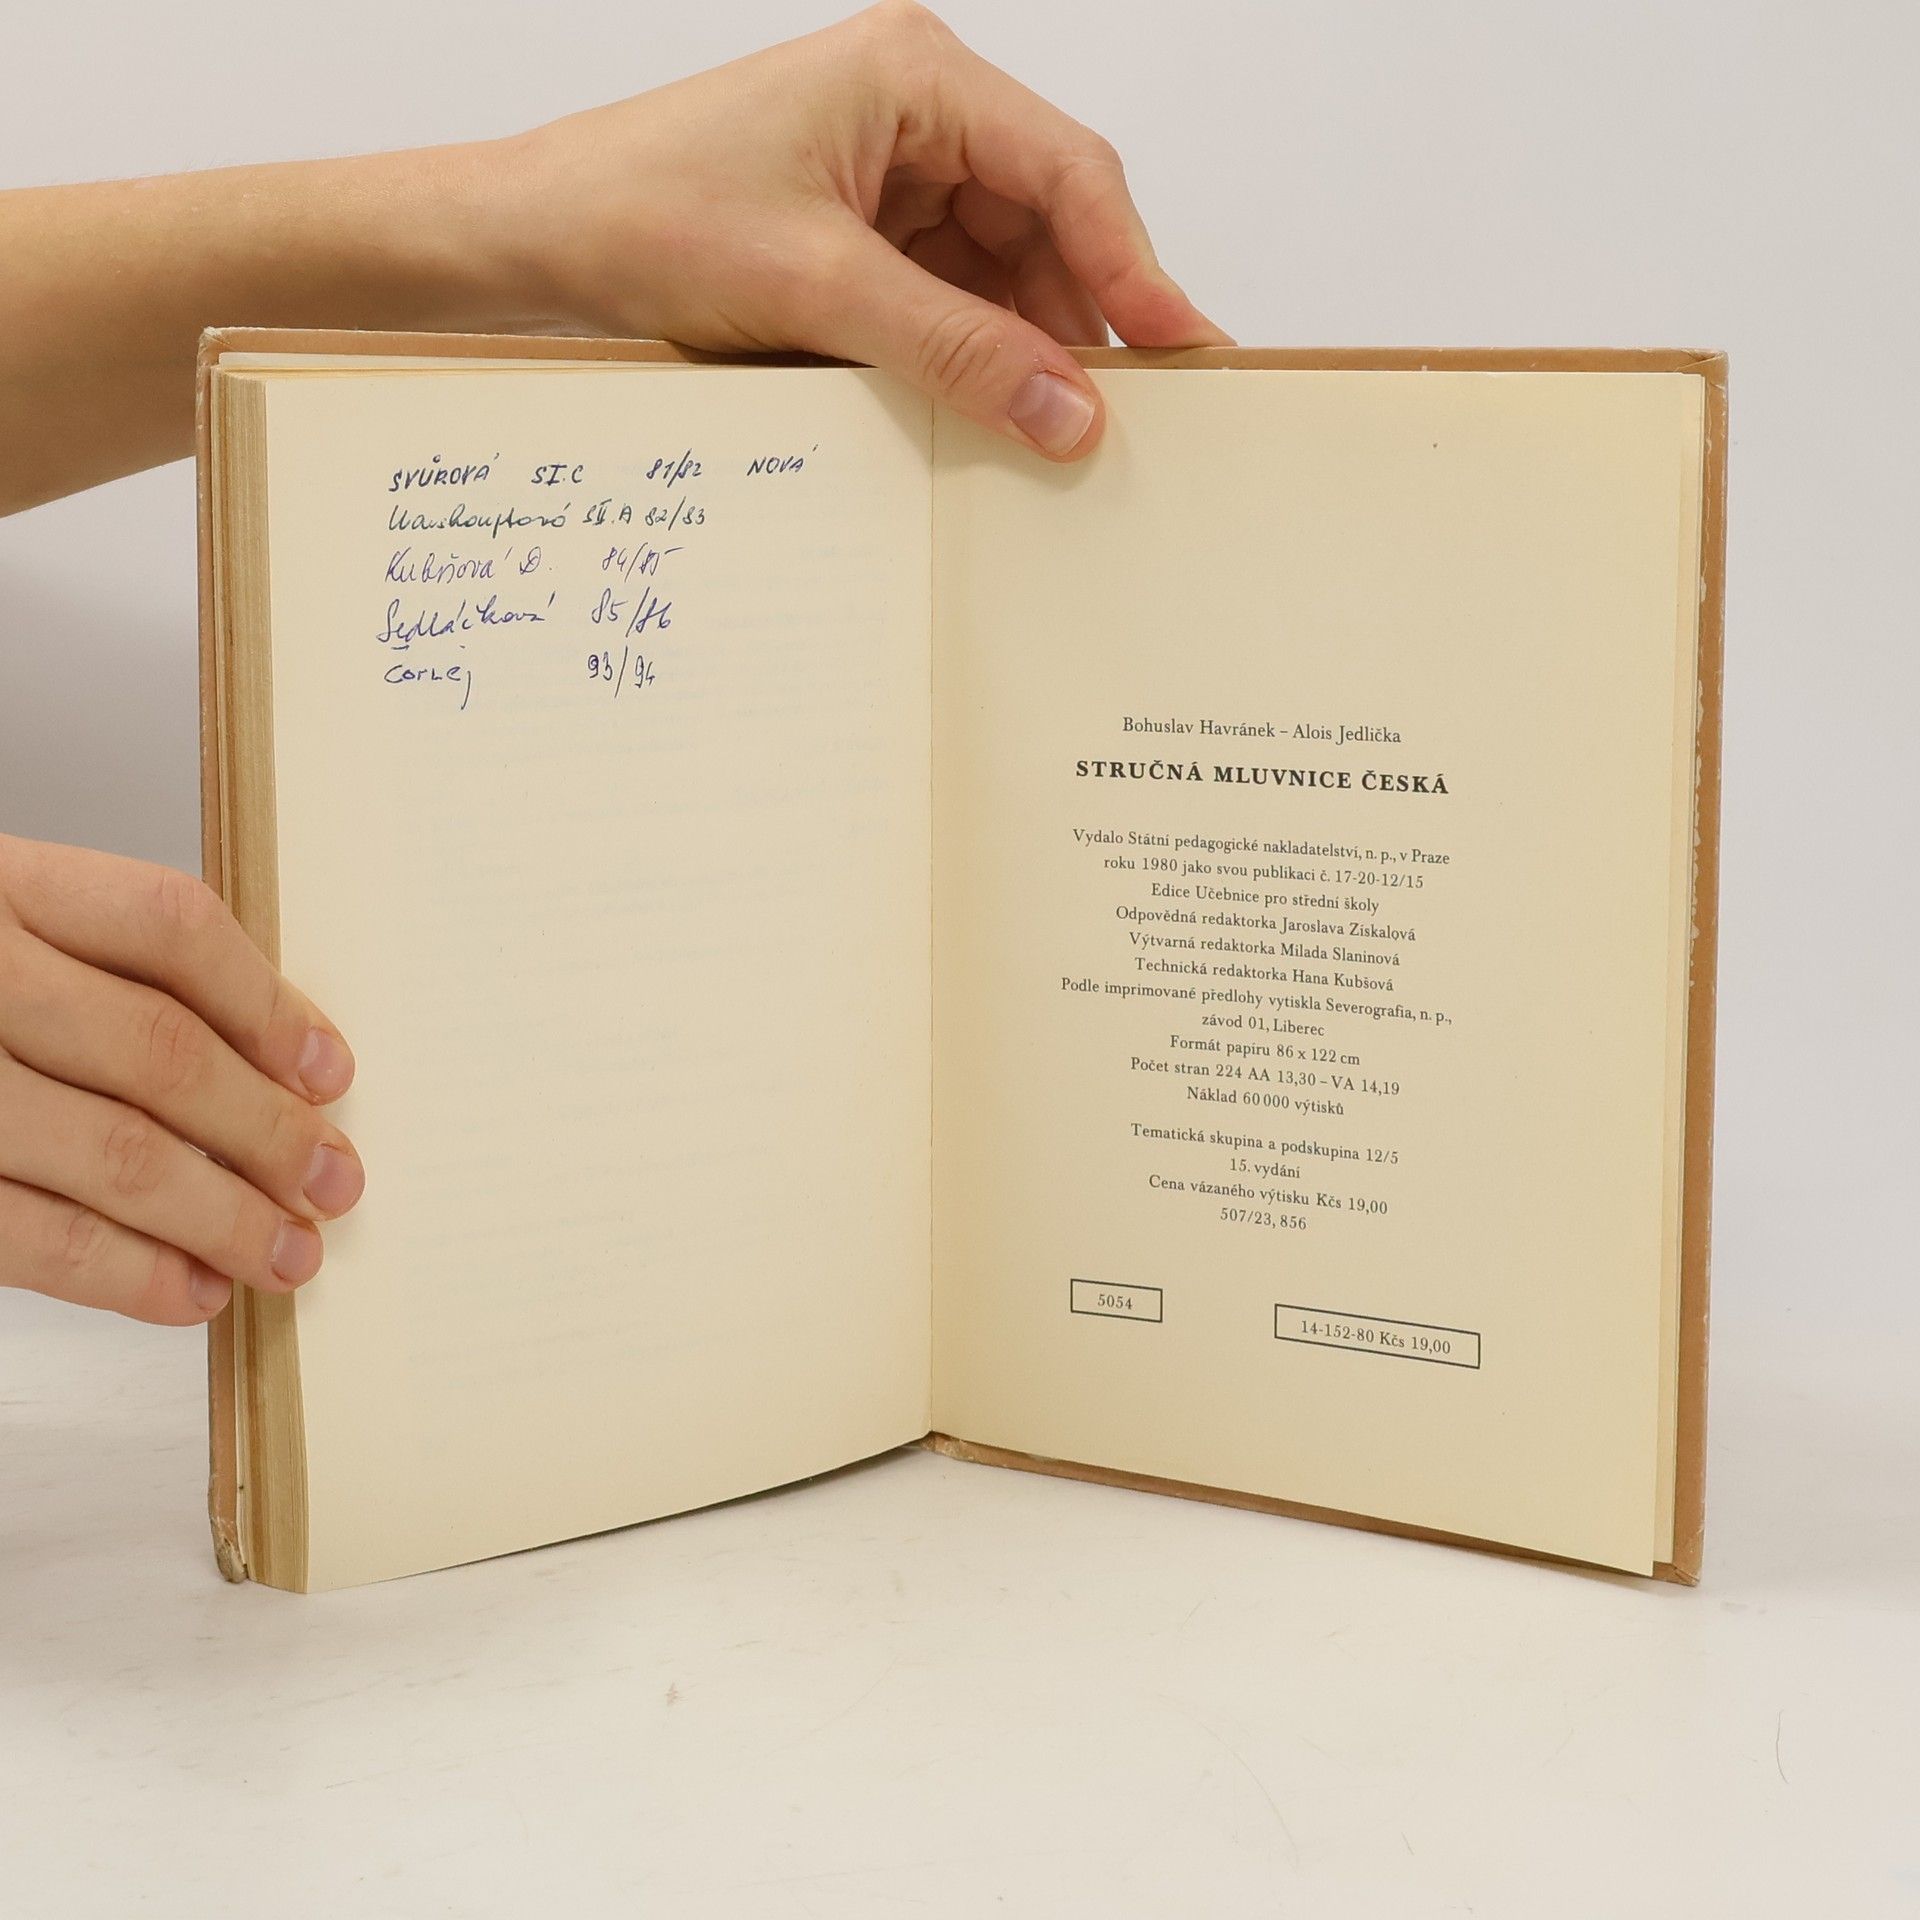 SVŮROVÁ SI.C 81/82 NOVÁ
SII.A 82/83
Kubišová D. 84/85
Sedláčková 85/86
93/94
Bohuslav Havránek – Alois Jedlička
STRUČNÁ MLUVNICE ČESKÁ
Vydalo Státní pedagogické nakladatelství, n. p., v Praze
roku 1980 jako svou publikaci č. 17-20-12/15
Edice Učebnice pro střední školy
Odpovědná redaktorka Jaroslava Získalová
Výtvarná redaktorka Milada Slaninová
Technická redaktorka Hana Kubšová
Podle imprimované předlohy vytiskla Severografia, n. p.,
závod 01, Liberec
Formát papíru 86 x 122 cm
Počet stran 224 AA 13,30 – VA 14,19
Náklad 60 000 výtisků
Tematická skupina a podskupina 12/5
15. vydání
Cena vázaného výtisku Kčs 19,00
507/23, 856
5054
14-152-80 Kčs 19,00